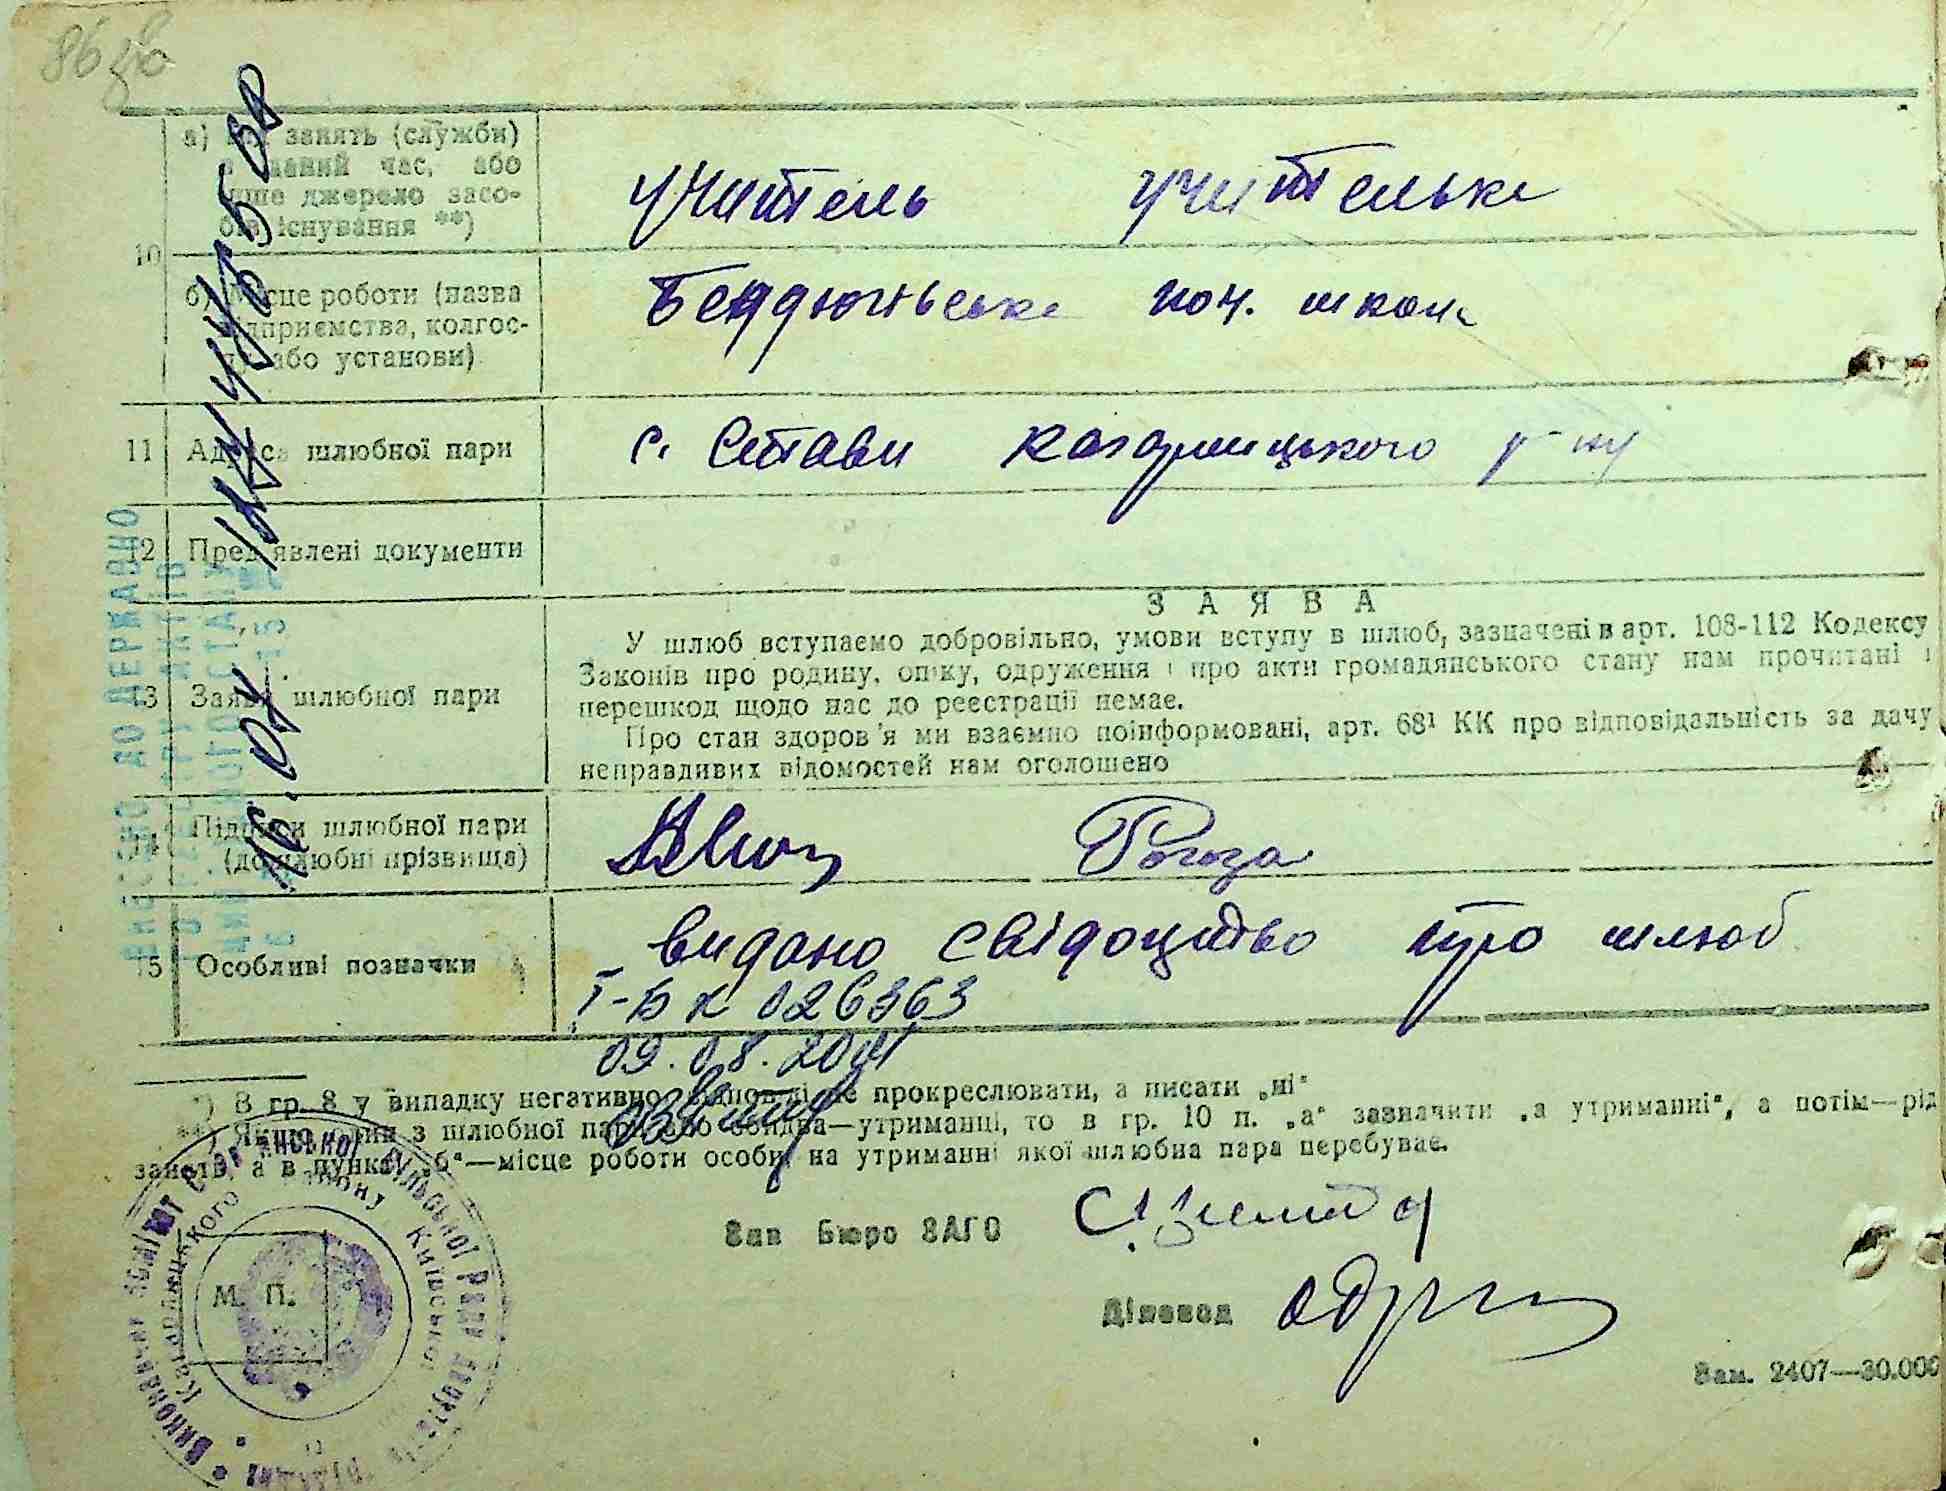 86 зв
а) Вид занять (служби)
в даний час, або
інше джерело засо-
бів існування **)
учитель учителька
10
б) Місце роботи (назва
підприємства, колгос-
пу або установи)
поч. школа
11 Адреса шлюбної пари
с. Стави Кагарлицького р-ну
12 Пред'явлені документи
13 Заява шлюбної пари
ЗАЯВА
У шлюб вступаємо добровільно, умови вступу в шлюб, зазначені в арт. 108-112 Кодексу
Законів про родину, опіку, одруження і про акти громадянського стану нам прочитані і
перешкод щодо нас до реєстрації немає.
Про стан здоров'я ми взаємно поінформовані, арт. 68¹ КК про відповідальність за дачу
неправдивих відомостей нам оголошено
14 Підписи шлюбної пари
(дошлюбні прізвища)
Рогоза
15 Особливі позначки
видано свідоцтво про шлюб
І-БК 026363
09.08.2001
*) В гр. 8 у випадку негативної відповіді не прокреслювати, а писати „ні"
**) Якщо один з шлюбної пари або обидва—утриманці, то в гр. 10 п. „а" зазначити „а утриманні", а потім—рід
занять, а в пункті „б"—місце роботи особи, на утриманні якої шлюбна пара перебуває.
Зав Бюро ЗАГС
Діловод
М. П.
Виконавчий комітет сільської Ради депутатів
Кагарлицького району Київської
Зам. 2407—30.000
ВНЕСЕНО ДО ДЕРЖАВНОГО
РЕЄСТРУ АКТІВ
ЦИВІЛЬНОГО СТАНУ